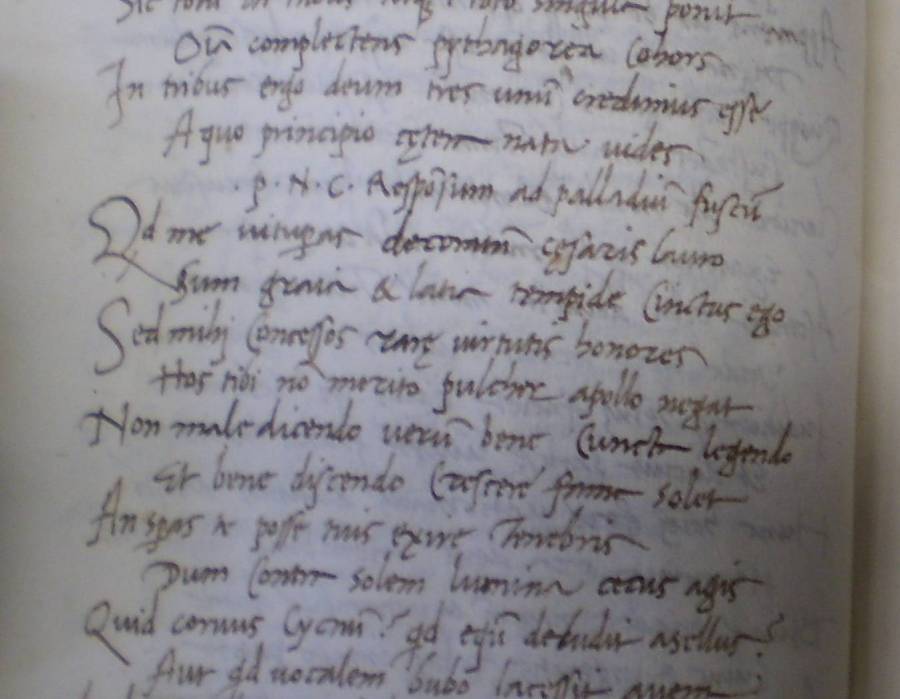 Sic totū in tribus est, & toto singula ponit
Oīa complectens pythagorea Cohors
In tribus ergo deum tres unū credimus esse
A quo principio cętera nata uides
. P. N. C. Respōsum ad palladiū fuscū
Qd me uituꝑas decoratum cęsaris lauro
Sum graia & latia tempide Cinctus ego
Sed mihj Concessos rarę uirtutis honores
Hos tibi nō merito pulcher apollo negat
Non male dicendo uerū bene Cuncta legendo
Et bene discendo Crescere fama solet
An sꝑas te posse tuis exire Tenebris
Dum Contra solem lumina cecus agis
Quid coruus Cycnū? qd equū deludit asellus?
Aut qd uocalem bubo lacessit auem